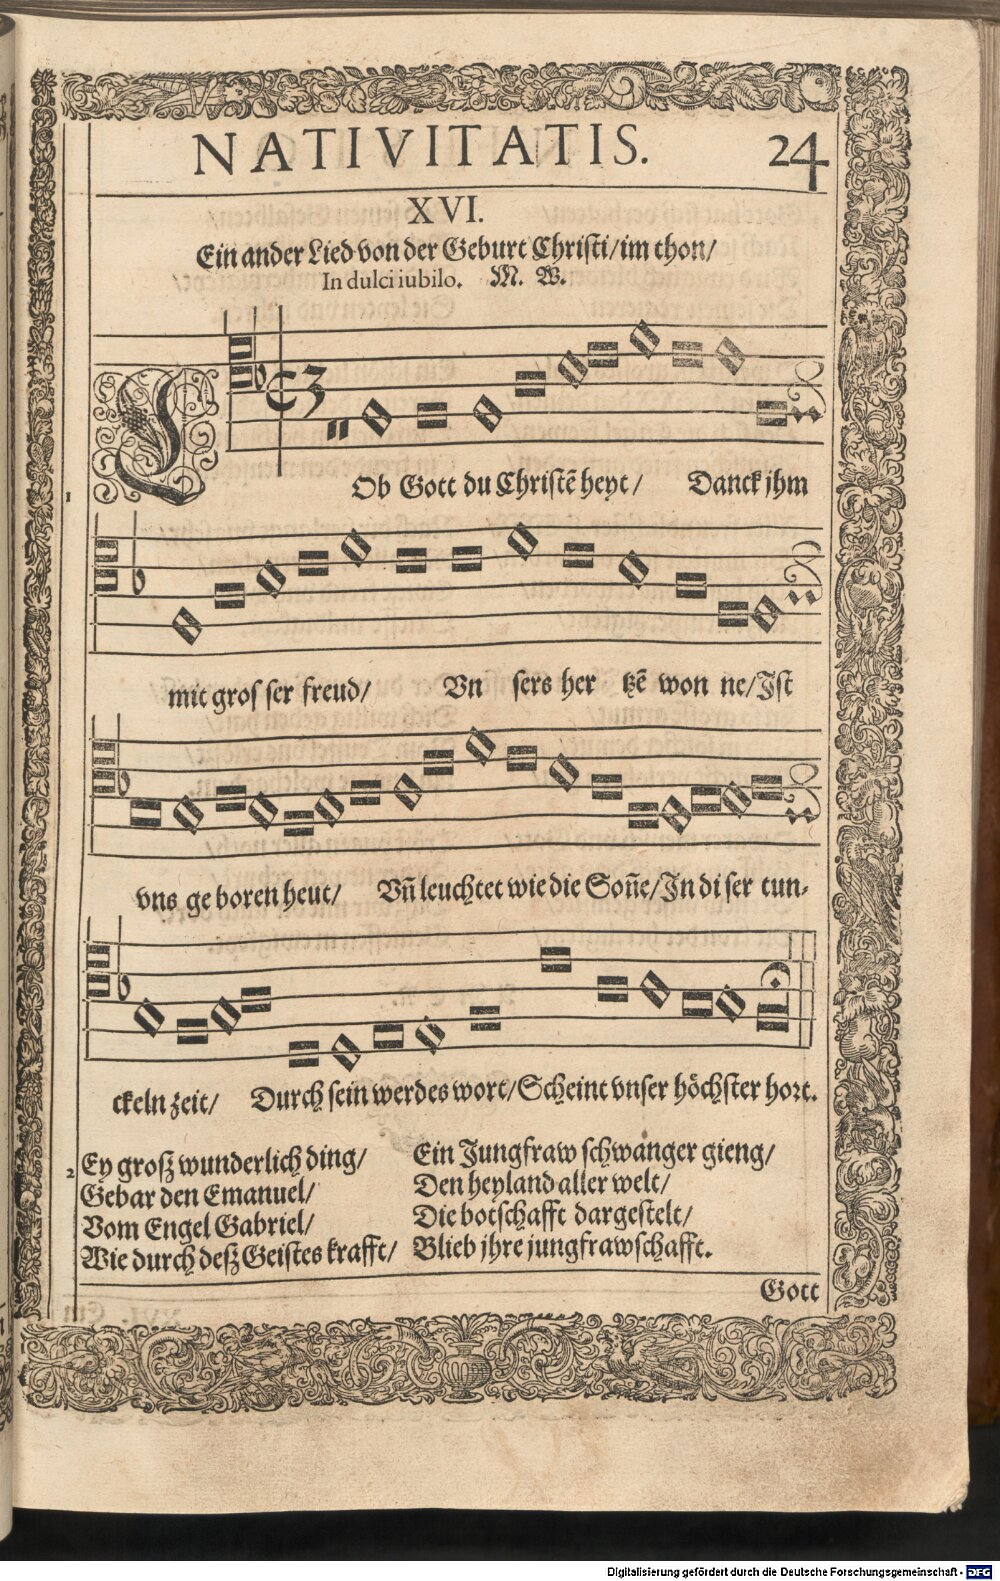 NATIVITATIS. 24
XVI.
Ein ander Lied von der Geburt Christi/im thon/
In dulci iubilo. M. W.
1 LOb Gott du Christē heyt/ Danck jhm
mit gros ser freud/ Vn sers her tzē won ne/Ist
vns ge boren heut/ Vn̄ leuchtet wie die Son̄e/In di ser tun-
ckeln zeit/ Durch sein werdes wort/Scheint vnser höchster hort.
2 Ey grosz wunderlich ding/
Gebar den Emanuel/
Vom Engel Gabriel/
Wie durch desz Geistes krafft/
Ein Jungfraw schwanger gieng/
Den heyland aller welt/
Die botschafft dargestelt/
Blieb jhre jungfrawschafft.
Gott
Digitalisierung gefördert durch die Deutsche Forschungsgemeinschaft - DFG